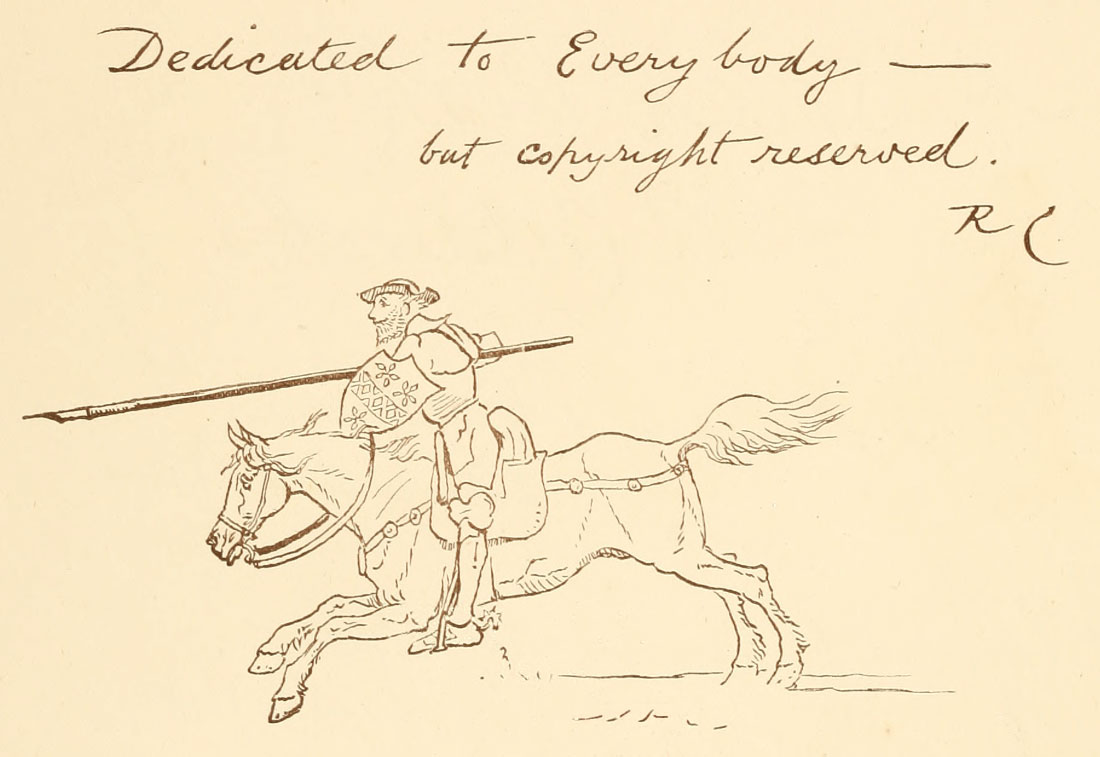 Dedicated to Everybody —
but copyright reserved.
R C